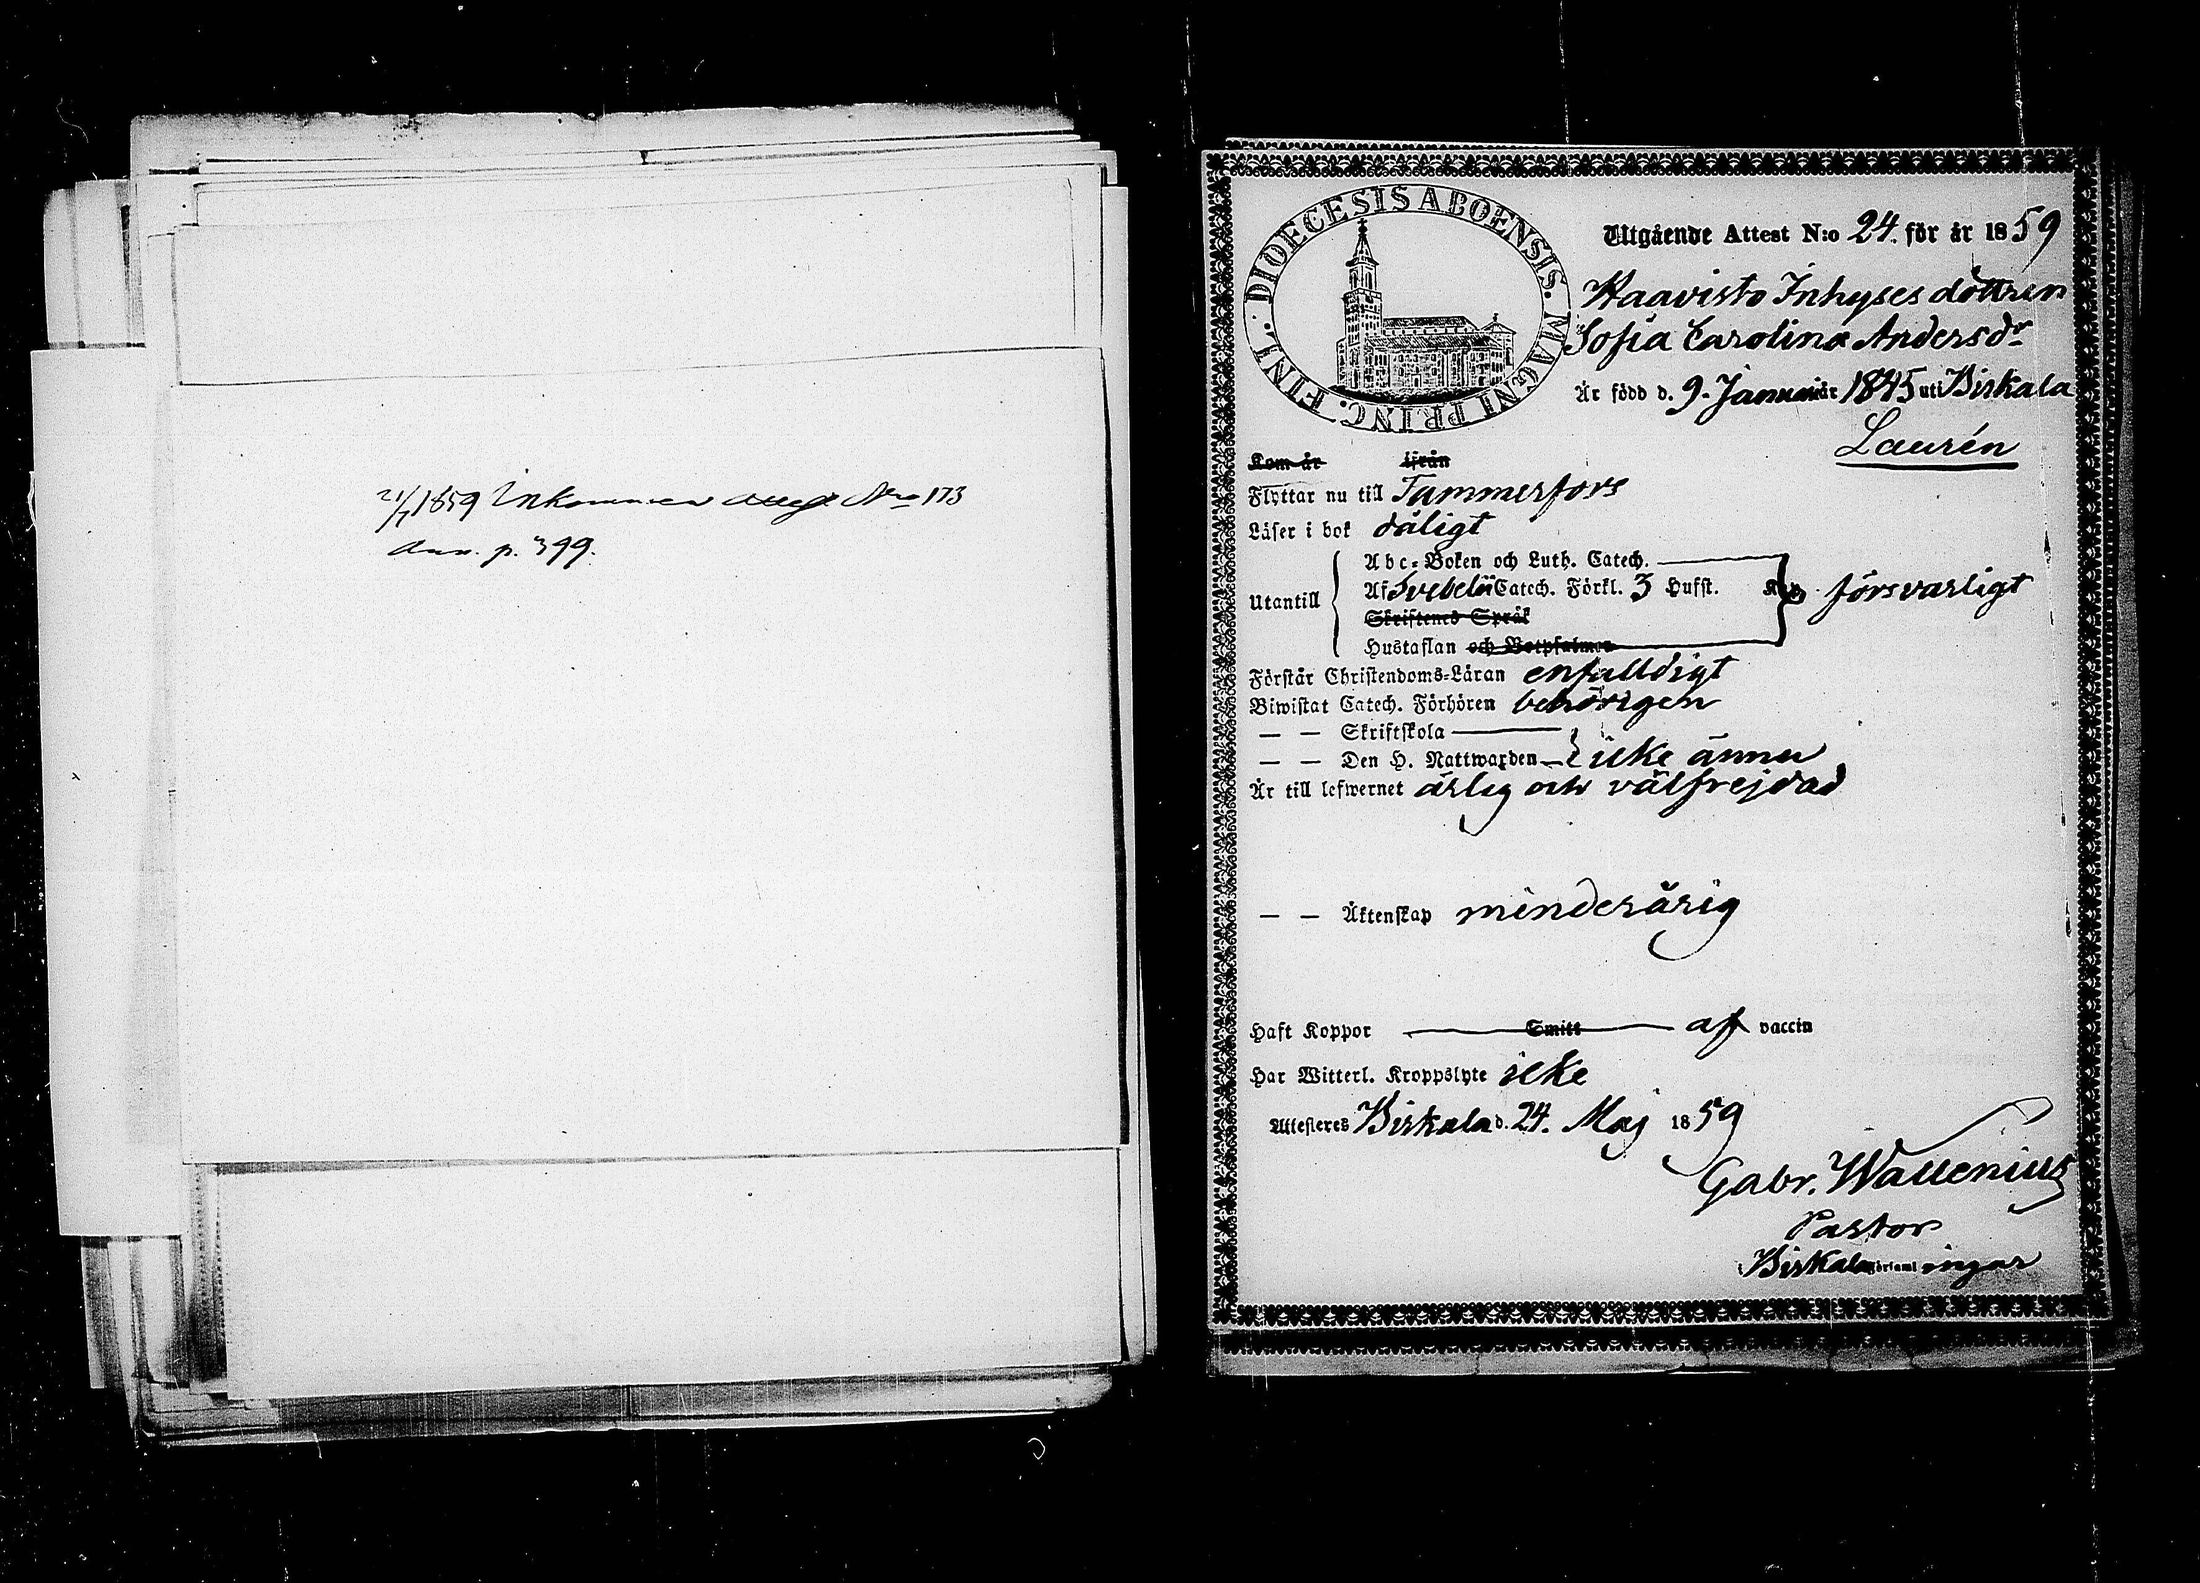 21/7 1859 Inkommen attest No 173
Ann. p. 399.
DIOECESIS ABOENSIS. MAGNI PRINC. FINL.
Utgående Attest N:o 24. för år 1859
Haavisto Inhyses döttren
Sofia Carolina Andersdr
Är född d. 9. Januari år 1845 uti Birkala
Laurén
Kom år ifrån
Flyttar nu till Tammerfors
Läser i bok dåligt
Utantill
Abc-Boken och Luth. Catech.
Af Svebelii Catech. Förkl. 3 Hufst. försvarligt
Skriftenes Språk
Hustaflan och Botpsalmen
Förstår Christendoms-Läran enfalldigt
Biwistat Catech. Förhören behörigen
— — Skriftskola
— — Den H. Nattwarden icke ännu
Är till lefwernet ärlig och välfrejdad
— — Äktenskap minderårig
Haft Koppor Smitt af vaccin
Har Witterl. Kroppslyte icke
Attesteres Birkala d. 24. Maj 1859
Gabr. Wallenius
Pastor
Birkala församlingar